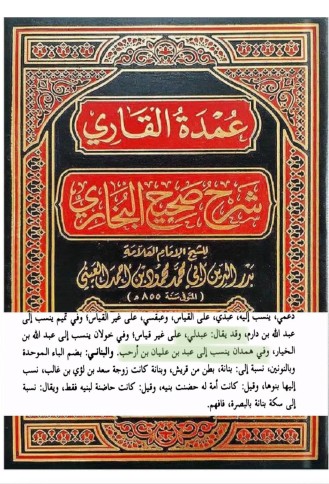 عمدة القاري
شرح صحيح البخاري
للشيخ الإمام العلامة
بدر الدين أبي محمد محمود بن أحمد العيني
المتوفى سنة ٨٥٥ هـ
دعمي، ينسب إليه، عبدي، على القياس، وعبقسي، على غير القياس؛ وفي تميم ينسب إلى
عبد الله بن دارم، وقد يقال: عبدلي، على غير قياس؛ وفي خولان ينسب إلى عبد الله بن
الخيار، وفي همدان ينسب إلى عبد بن عليان بن أرحب. والبناني: بضم الباء الموحدة
وبالنونين، نسبة إلى: بنانة، بطن من قريش، وبنانة كانت زوجة سعد بن لؤي بن غالب، نسب
إليها بنوها، وقيل: كانت أمة له حضنت بنيه، وقيل: كانت حاضنة لبنيه فقط، ويقال: نسبة
إلى سكة بنانة بالبصرة، فافهم.